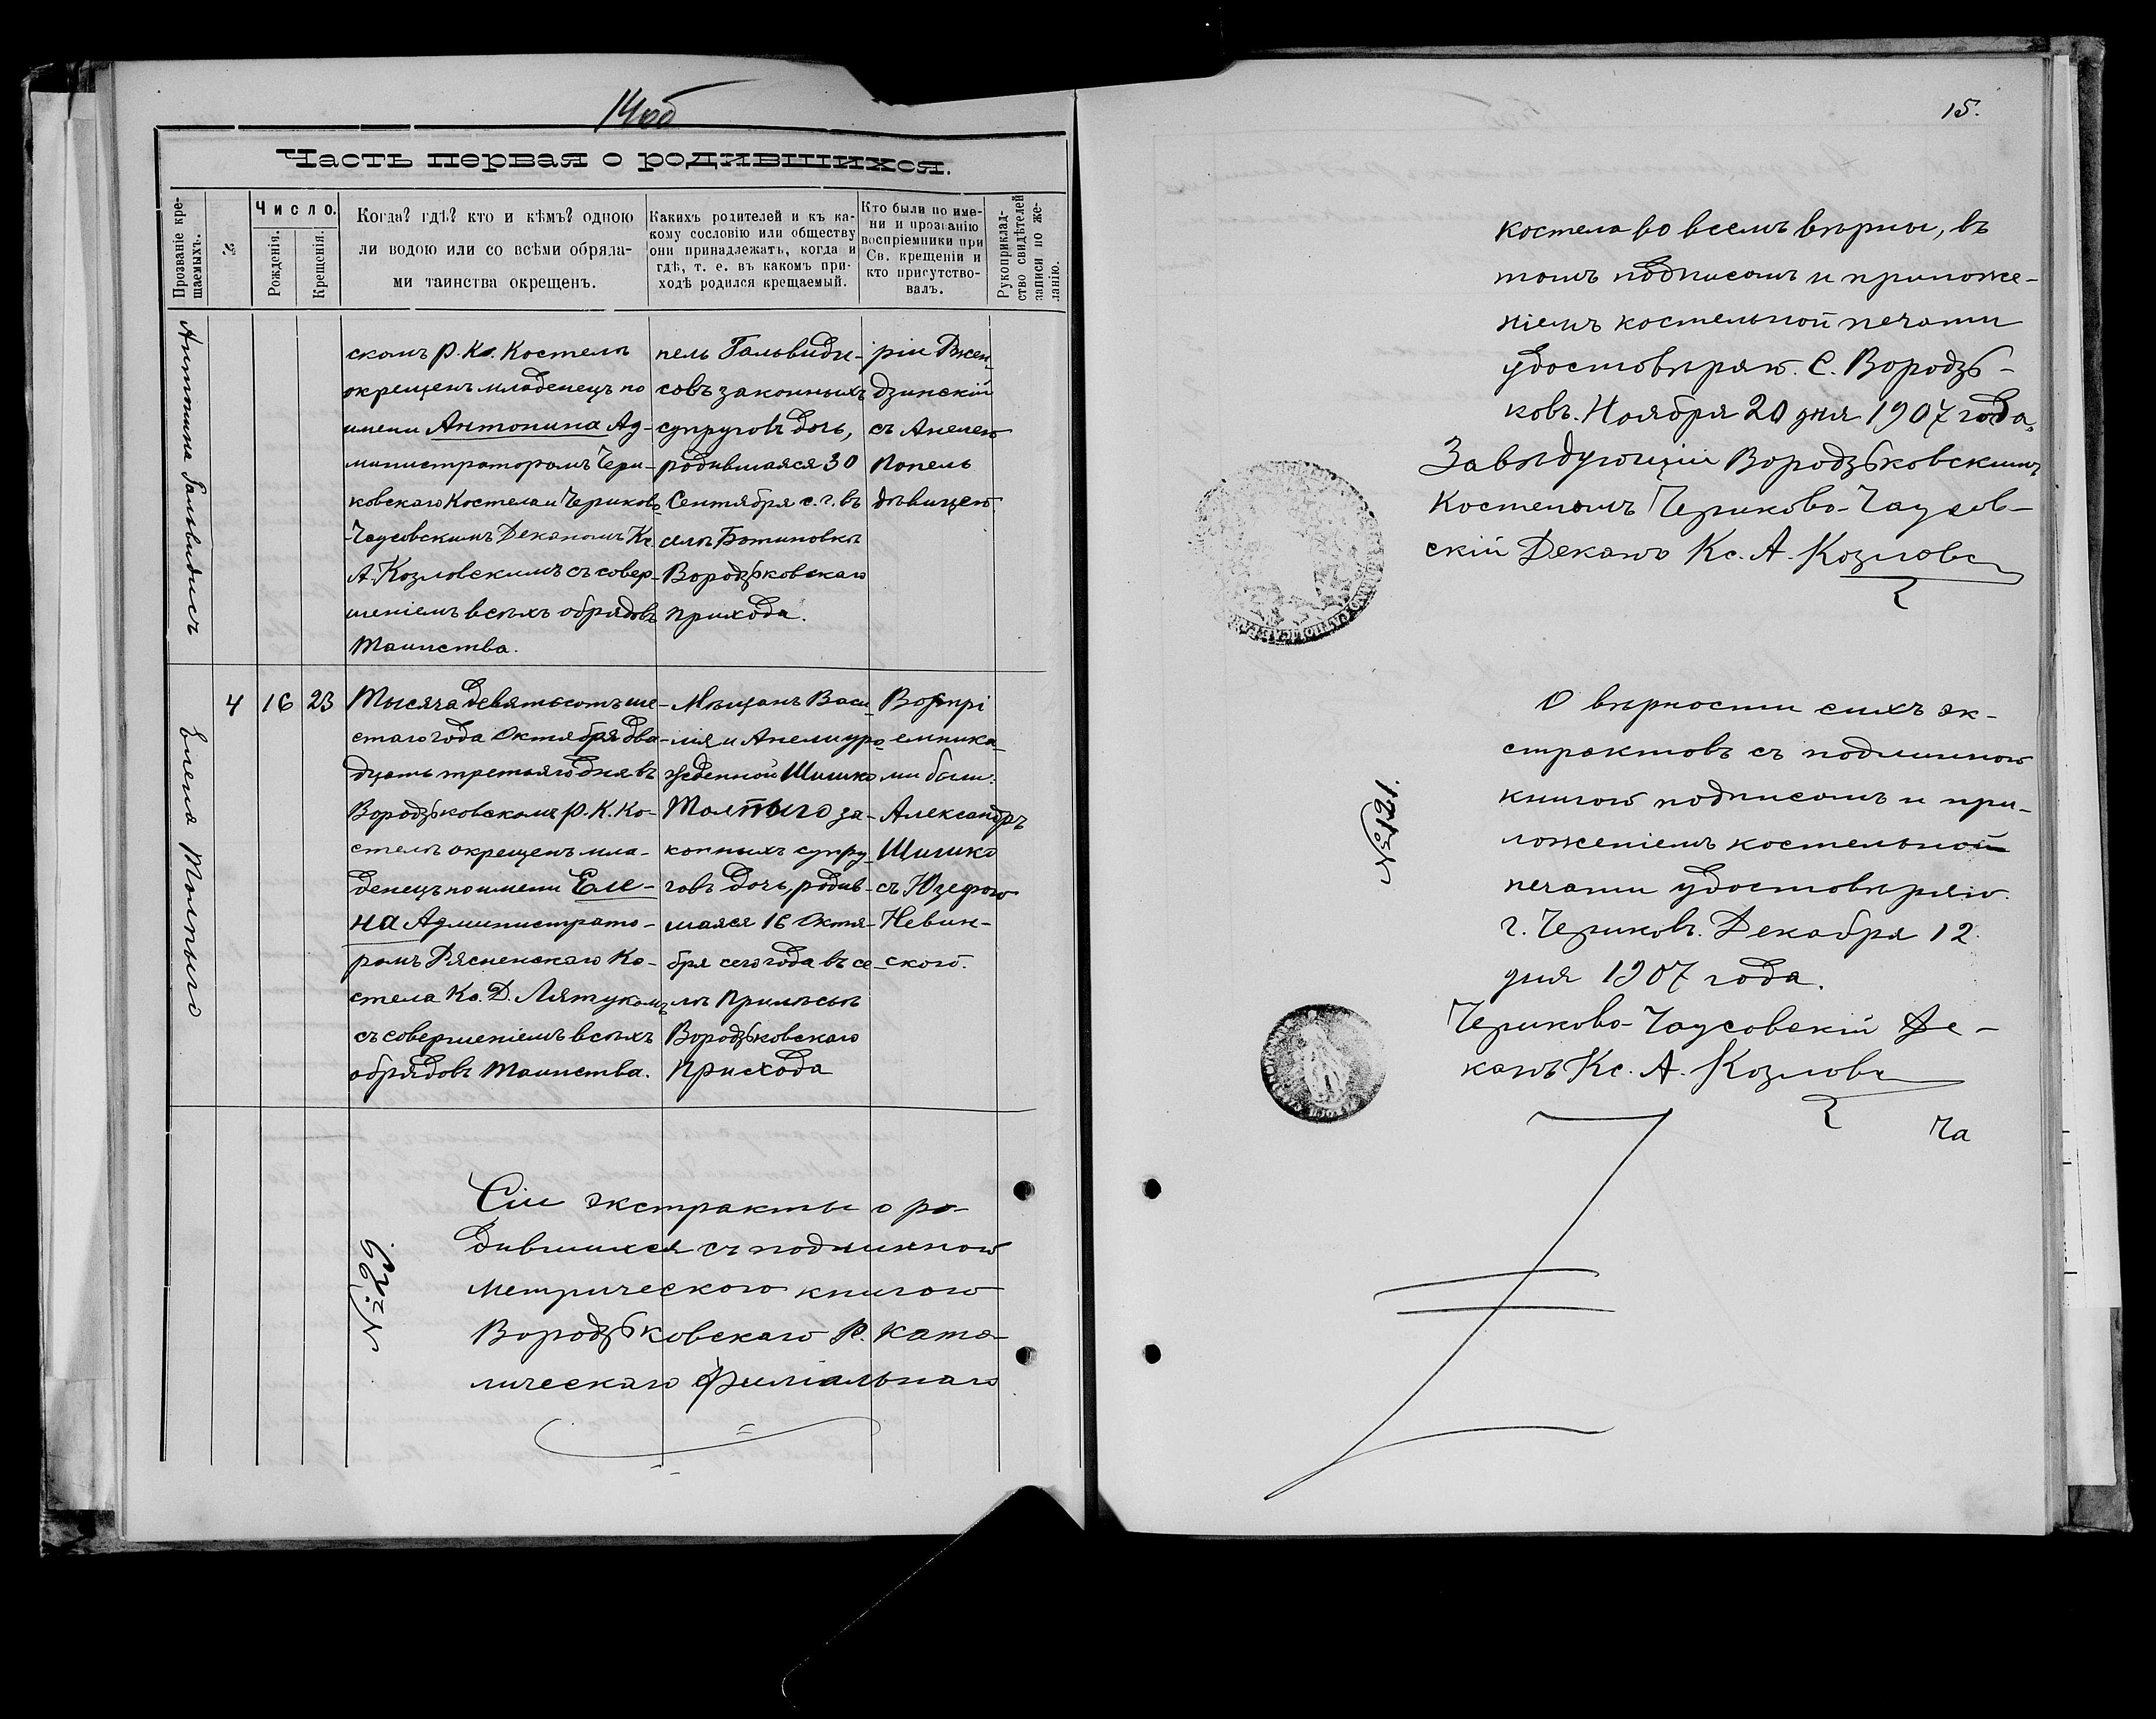 14об
Часть первая о родившихся.
Прозваніе кре-
щаемыхъ.
№
Число.
Рожденія.
Крещенія.
Когда? гдѣ? кто и кѣмъ? одною
ли водою или со всѣми обряда-
ми таинства окрещенъ.
Какихъ родителей и къ ка-
кому сословію или обществу
они принадлежатъ, когда и
гдѣ, т. е. въ какомъ при-
ходѣ родился крещаемый.
Кто были по име-
ни и прозванію
воспріемники при
Св. крещеніи и
кто присутство-
валъ.
Рукоприклад-
ство свидѣтелей
записи по же-
ланію.
Антонина Гальвидисъ
скомъ Р. К. Костелѣ
окрещенъ младенецъ по
имени Антонина Ад-
министраторомъ Чери-
ковскаго Костела и Чериково-
Чаусовскимъ Деканомъ Кс.
А. Козловскимъ съ совер-
шеніемъ всѣхъ обрядовъ
Таинства.
пель Гальвиди-
совъ законныхъ
супруговъ дочь,
родившаяся 30
Сентября с. г. въ
селѣ Ботиновкѣ
Вородьковскаго
прихода.
рій
дзинскій
съ Анелею
Попель
дѣвицею
Елена Толпыго
4
16
23
Тысяча девятьсотъ ше-
стаго года Октября два-
дцать третьяго дня въ
Вородьковскомъ Р. К. Ко-
стелѣ окрещенъ мла-
денецъ по имени Еле-
на Администрато-
ромъ Рясненскаго Ко-
стела Кс. Д. Лятукомъ
съ совершеніемъ всѣхъ
обрядовъ Таинства.
Мѣщанъ Васи-
лія и Анели уро-
жденной Шишко
Толпыго за-
конныхъ супру-
говъ дочь, родив-
шаяся 16 Октя-
бря сего года въ се-
лѣ Прилѣсьѣ
Вородьковскаго
Прихода
Воспрі
емника-
ми были:
Александръ
Шишко
съ Юзефою
Невин-
ского.
№ 29.
Сіи экстракты о ро-
дившихся съ подлинною
Метрическою книгою
Вородьковскаго Р. Като-
лическаго Филіальнаго
15.
костела во всемъ вѣрны, въ
томъ подписомъ и приложе-
ніемъ костельной печати
удостовѣряю. С. Вородь-
ковъ. Ноября 20 дня 1907 года.
Завѣдующій Вородьковскимъ
Костеломъ Чериково-Чаусов-
скій Деканъ Кс. А. Козловс
О вѣрности сихъ эк-
страктовъ съ подлинною
книгою подписомъ и при-
ложеніемъ костельной
печати удостовѣряю.
г. Чериковъ. Декабря 12
дня 1907 года.
Чериково-Чаусовскій Де-
канъ Кс. А. Козловс